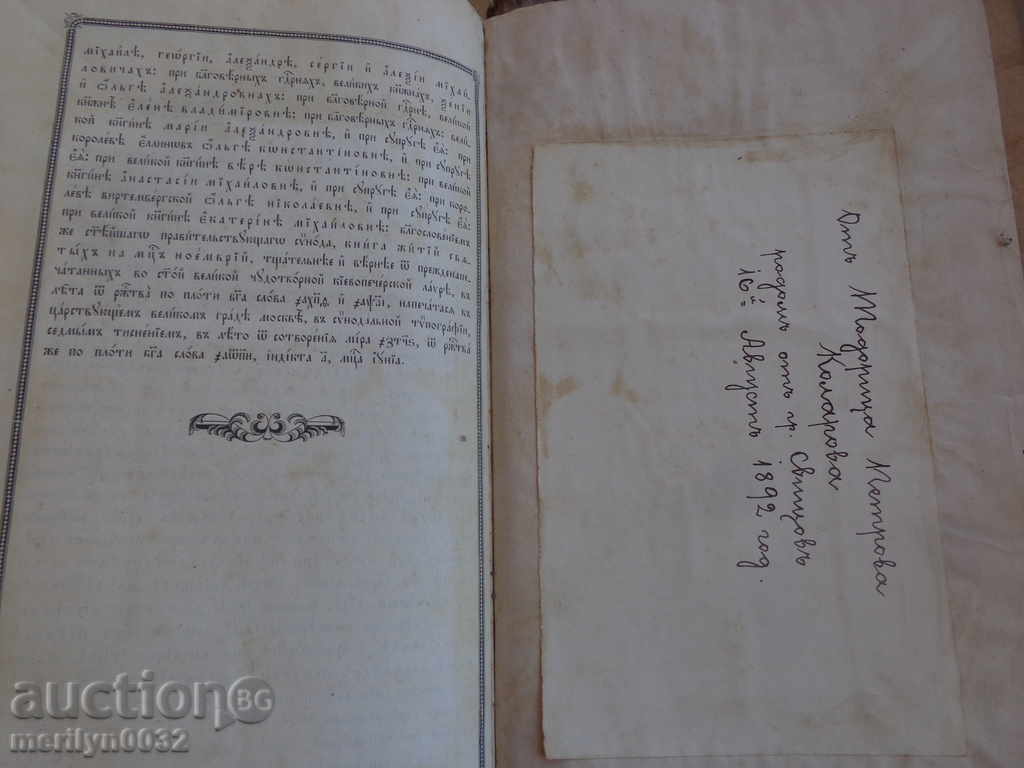 мїхаилѣ, геѡргїи, алеѯандрѣ, сергїи и алеѯїи мїхаи-
ловичахъ: при бл҃говѣрныхъ гдⷭ҇рняхъ, великихъ кнѧжнахъ, ѯенїи
и ѻльгѣ алеѯандровнахъ: при бл҃говѣрной гдⷭ҇рнѣ, великой
кнѧжнѣ еленѣ владимїровнѣ: при бл҃говѣрныхъ гдⷭ҇рняхъ: вели-
кой кнѧгинѣ марїи алеѯандровнѣ, и при сꙋпрꙋгѣ еѧ̀: при
королевѣ еллинѡвъ ѻльгѣ кѡнстантїновнѣ, и при сꙋпрꙋгѣ
еѧ̀: при великой кнѧгинѣ вѣрѣ кѡнстантїновнѣ: при великой
кнѧгинѣ анастасїи мїхаиловнѣ, и при сꙋпрꙋгѣ еѧ̀: при коро-
левѣ виртембергской ѻльгѣ нїколаевнѣ, и при сꙋпрꙋгѣ еѧ̀:
при великой кнѧгинѣ екатерїнѣ мїхаиловнѣ: благословенїем
же ст҃ѣйшагѡ правительствꙋющагѡ сѵнода, книга житїй свѧ-
тыхъ на мцⷭ҇ъ ноемврїй, тщательнѣе и вѣрнѣе ѿ прежденапе-
чатанныхъ во ст҃ой великой чꙋдотворной кїевопечерской лаѵрѣ, въ
лѣта ѿ ржⷭ҇тва по плоти бг҃а слова и напечатасѧ въ
царствꙋющем великом градѣ москвѣ, въ сѵнодальной тѵпографїи,
седмымъ тисненїем, въ лѣто ѿ сотворенїѧ мїра ѿ ржⷭ҇тва
же по плоти бг҃а слова индїкта мцⷭ҇а їꙋнїа.
Отъ Тодорица Петрова
Коларова
родомъ отъ гр. Свищовъ
16ѝ Августъ 1892 год.
auctionBG
merilyn0032